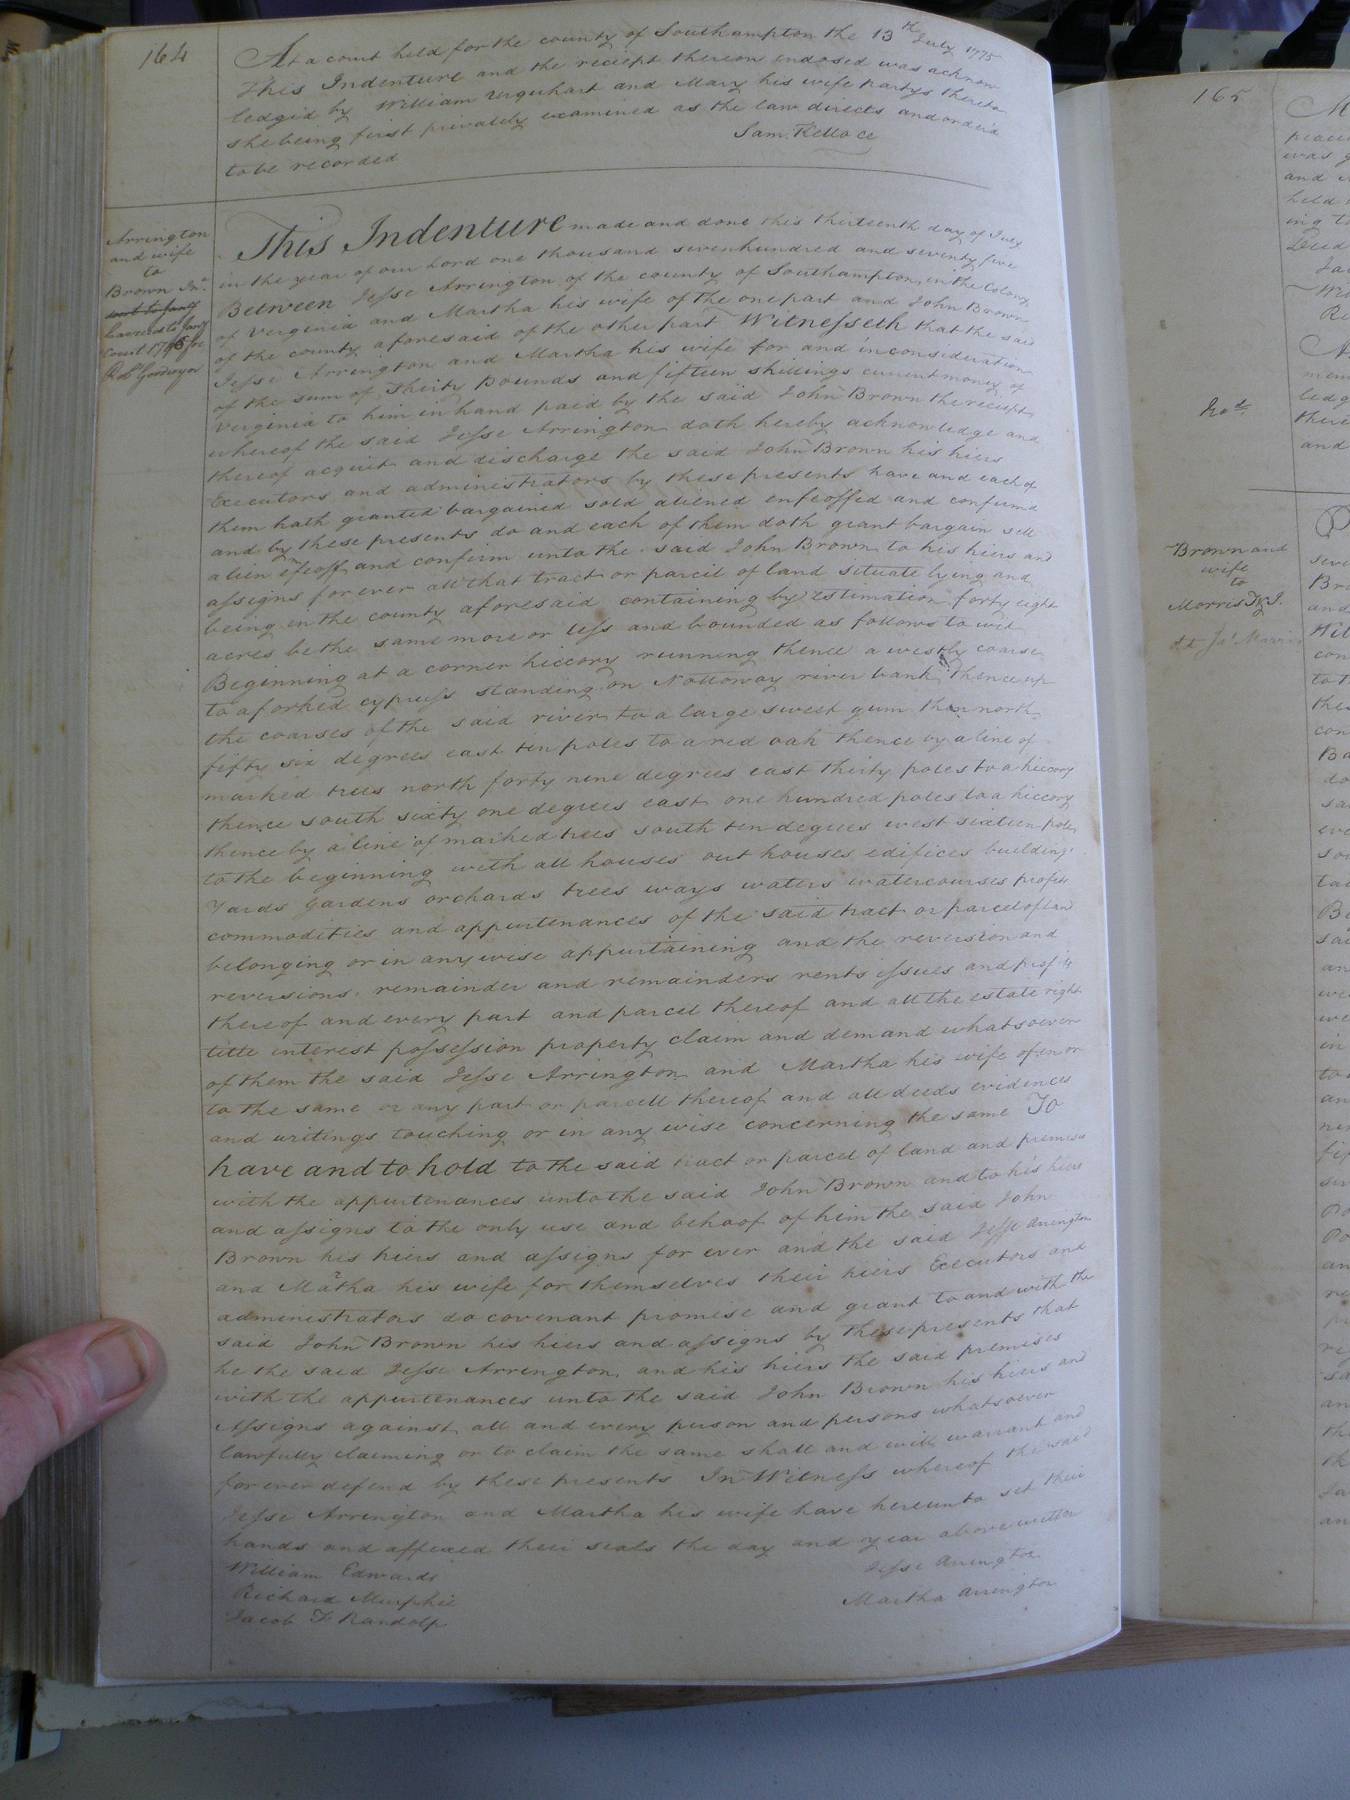 164
At a court held for the county of Southampton the 13th July 1775
This Indenture and the reciept thereon endosed was acknow
ledgid by William Urquhart and Mary his wife partys thereto
she being first privately examined as the law directs and orderd
to be recorded
Sam. Kello cc
Arrington
and wife
to
Brown Jno.
This Indenture made and done this thirteenth day of July
in the year of our Lord one thousand sevenhundred and seventy five
Between Jesse Arrington of the county of Southampton in the Colony
of Verginia and Martha his wife of the one part and John Brown
of the county aforesaid of the other part Witnesseth that the said
Jesse Arrington and Martha his wife for and inconsideration
of the sum of Thirty Pounds and fifteen shillings current money of
Verginia to him in hand paid by the said John Brown the reciept
whereof the said Jesse Arrington doth hereby acknowledge and
thereof acquit and discharge the said John Brown his hiers
Executors and administrators by these presents have and each of
them hath granted bargained sold aliened enfeoffed and confirmd
and by these presents do and each of them doth grant bargain sell
alien efeoff and confirm unto the said John Brown to his hiers and
assigns for ever all that tract or parcil of land situate lying and
being in the county aforesaid containing by estimation forty eight
acres be the same more or less and bounded as follows to wit
Beginning at a corner hiccory running thence a westly coarse
to a forked cypress standing on Nottoway river bank thence up
the coarses of the said river to a large sweet gum then north
fifty six degrees east ten poles to a red oak thence by a line of
marked trees north forty nine degrees east thirty poles to a hiccory
thence south sixty one degrees east one hundred poles to a hiccory
thence by a line of marked trees south ten degrees west sixteen poles
to the beginning with all houses out houses edifices building
Yards gardens orchards trees ways waters watercourses profits
commodities and appurtenances of the said tract or parcel of land
belonging or in any wise appurtaining and the reversion and
reversions remainder and remainders rents issues and profits
thereof and every part and parcel thereof and all the estate right
title interest possession property claim and demand whatsoever
of them the said Jesse Arrington and Martha his wife of in or
to the same or any part or parcell thereof and all deeds evidences
and writings touching or in any wise concerning the same To
have and to hold to the said tract or parcel of land and premises
with the appurtenances unto the said John Brown and to his hiers
and assigns to the only use and behoof of him the said John
Brown his hiers and assigns for ever and the said Jesse Arrington
and Martha his wife for themselves their hiers Executors and
administrators do covenant promise and grant to and with the
said John Brown his hiers and assigns by these presents that
he the said Jesse Arrington and his hiers the said premises
with the appurtenances unto the said John Brown his hiers and
Assigns against all and every person and persons whatsoever
lawfully claiming or to claim the same shall and will warrant and
for ever defend by these presents In Witness whereof the said
Jesse Arrington and Martha his wife have hereunto set their
hands and affixed their seals the day and year above written
William Edwards
Richard Murphie
Jacob F Randolp
Jesse Arrington
Martha Arrington
165
Brown and
wife
to